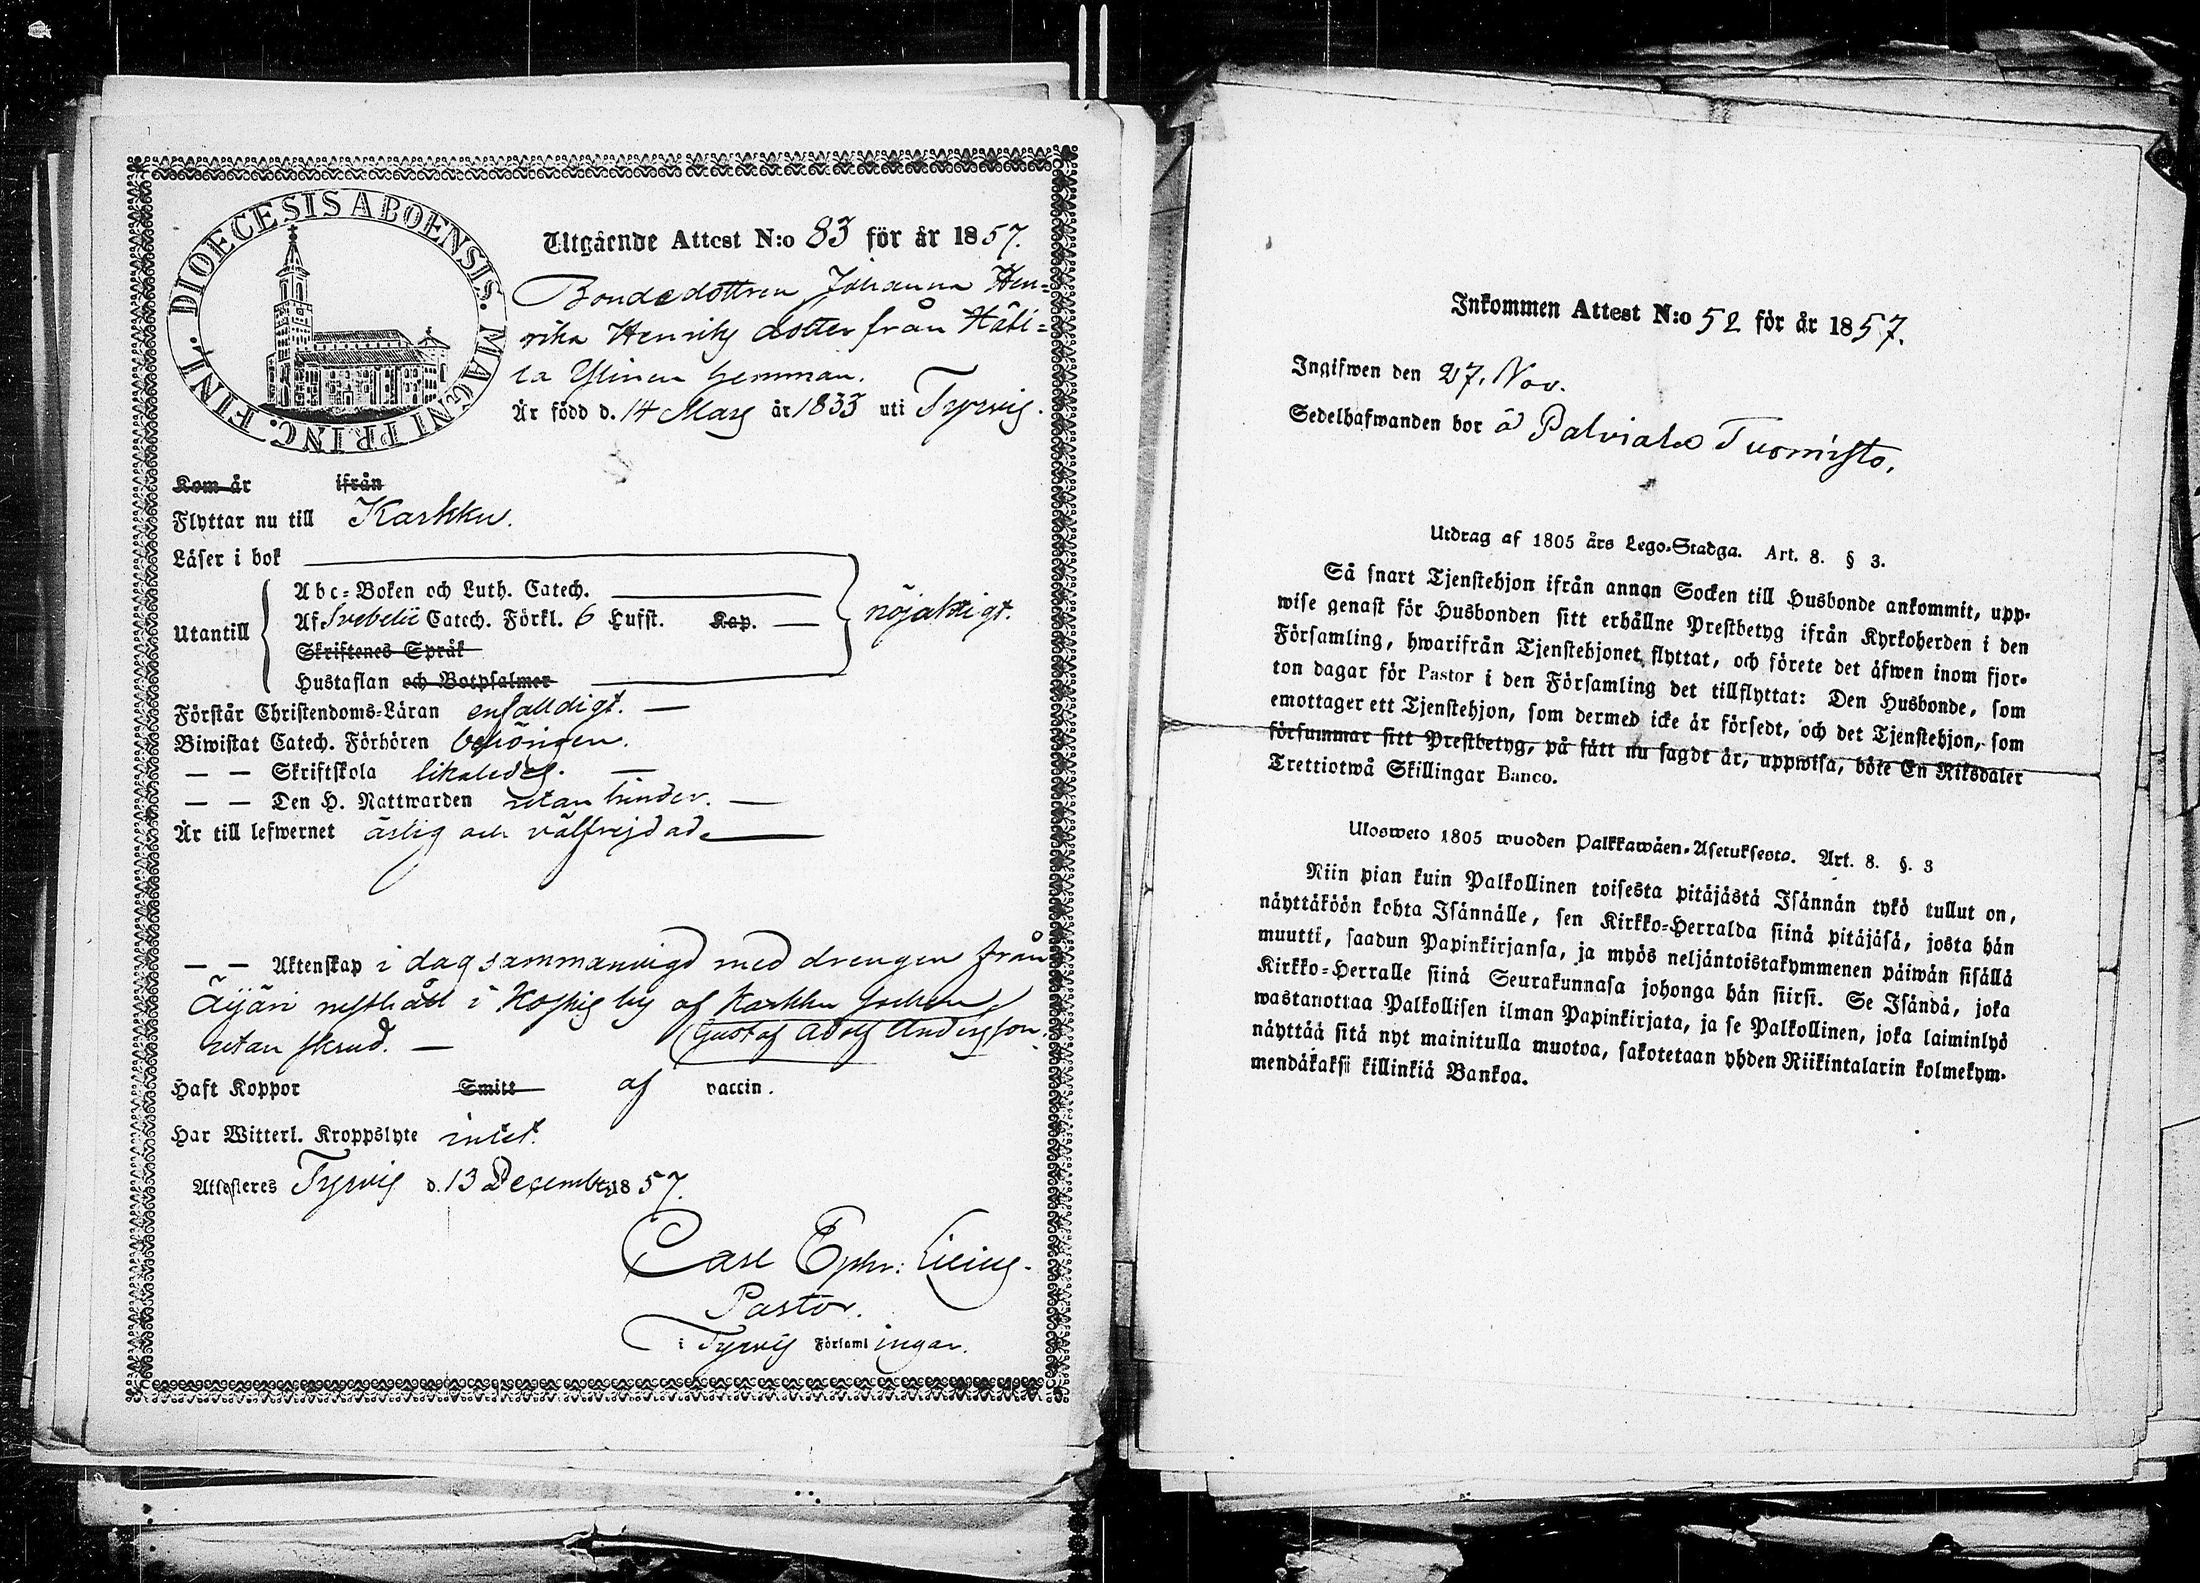 DIOECESIS ABOENSIS. MAGNI PRINC. FINL.
Utgående Attest N:o 83 för år 1857.
Bondedottren Johanna Hen=
rika Henriks dotter från
la Ylinen hemman.
Är född d. 14 Mars år 1833 uti Tyrvis.
Kom år ifrån
Flyttar nu till Karkku.
Läser i bok
Abc=Boken och Luth. Catech.
Utantill Af Svebelii Catech. Förkl. 6 Hufst. Kap. nöjaktigt.
Skriftenes Språk
Hustaflan och Botpsalmer
Förstår Christendoms=Läran enfalldigt. —
Biwistat Catech. Förhören behörigen.
— — Skriftskola likaledes. —
— — Den H. Nattwarden utan hinder. —
Är till lefwernet ärlig och välfrejdad.
— — Äktenskap i dag sammanvigd med drengen från
Äijäri nysthåll i Koskis by af Karkku socken
utan skrud. — Gustaf Adolf Andersson.
Haft Koppor Smitt af vaccin.
Har Witterl. Kroppslyte intet.
Attesteres Tyrvis d. 13 December 1857.
Carl Ephr: Lilius.
Pastor.
i Tyrvis Församlingar.
Inkommen Attest N:o 52 för år 1857.
Ingifwen den 27. Nov.
Sedelhafwanden bor å Palviala Tuomisto.
Utdrag af 1805 års Lego=Stadga. Art. 8. § 3.
Så snart Tjenstehjon ifrån annan Socken till Husbonde ankommit, upp=
wise genast för Husbonden sitt erhållne Prestbetyg ifrån Kyrkoherden i den
Församling, hwarifrån Tjenstehjonet flyttat, och förete det äfwen inom fjor=
ton dagar för Pastor i den Församling det tillflyttat: Den Husbonde, som
emottager ett Tjenstehjon, som dermed icke är försedt, och det Tjenstehjon, som
försummar sitt Prestbetyg, på sätt nu sagdt är, uppwisa, böte En Riksdaler
Trettiotwå Skillingar Banco.
Ulosweto 1805 wuoden Palkkawäen=Asetuksesta. Art. 8. §. 3
Niin pian kuin Palkollinen toisesta pitäjästä Isännän tykö tullut on,
näyttäköön kohta Isännälle, sen Kirkko=Herralda siinä pitäjäsä, josta hän
muutti, saadun Papinkirjansa, ja myös neljäntoistakymmenen päiwän sisällä
Kirkko=Herralle siinä Seurakunnasa johonga hän siirsi. Se Isändä, joka
wastanottaa Palkollisen ilman Papinkirjata, ja se Palkollinen, joka laiminlyö
näyttää sitä nyt mainitulla muotoa, sakotetaan yhden Riikintalarin kolmekym=
mendäkaksi killinkiä Bankoa.